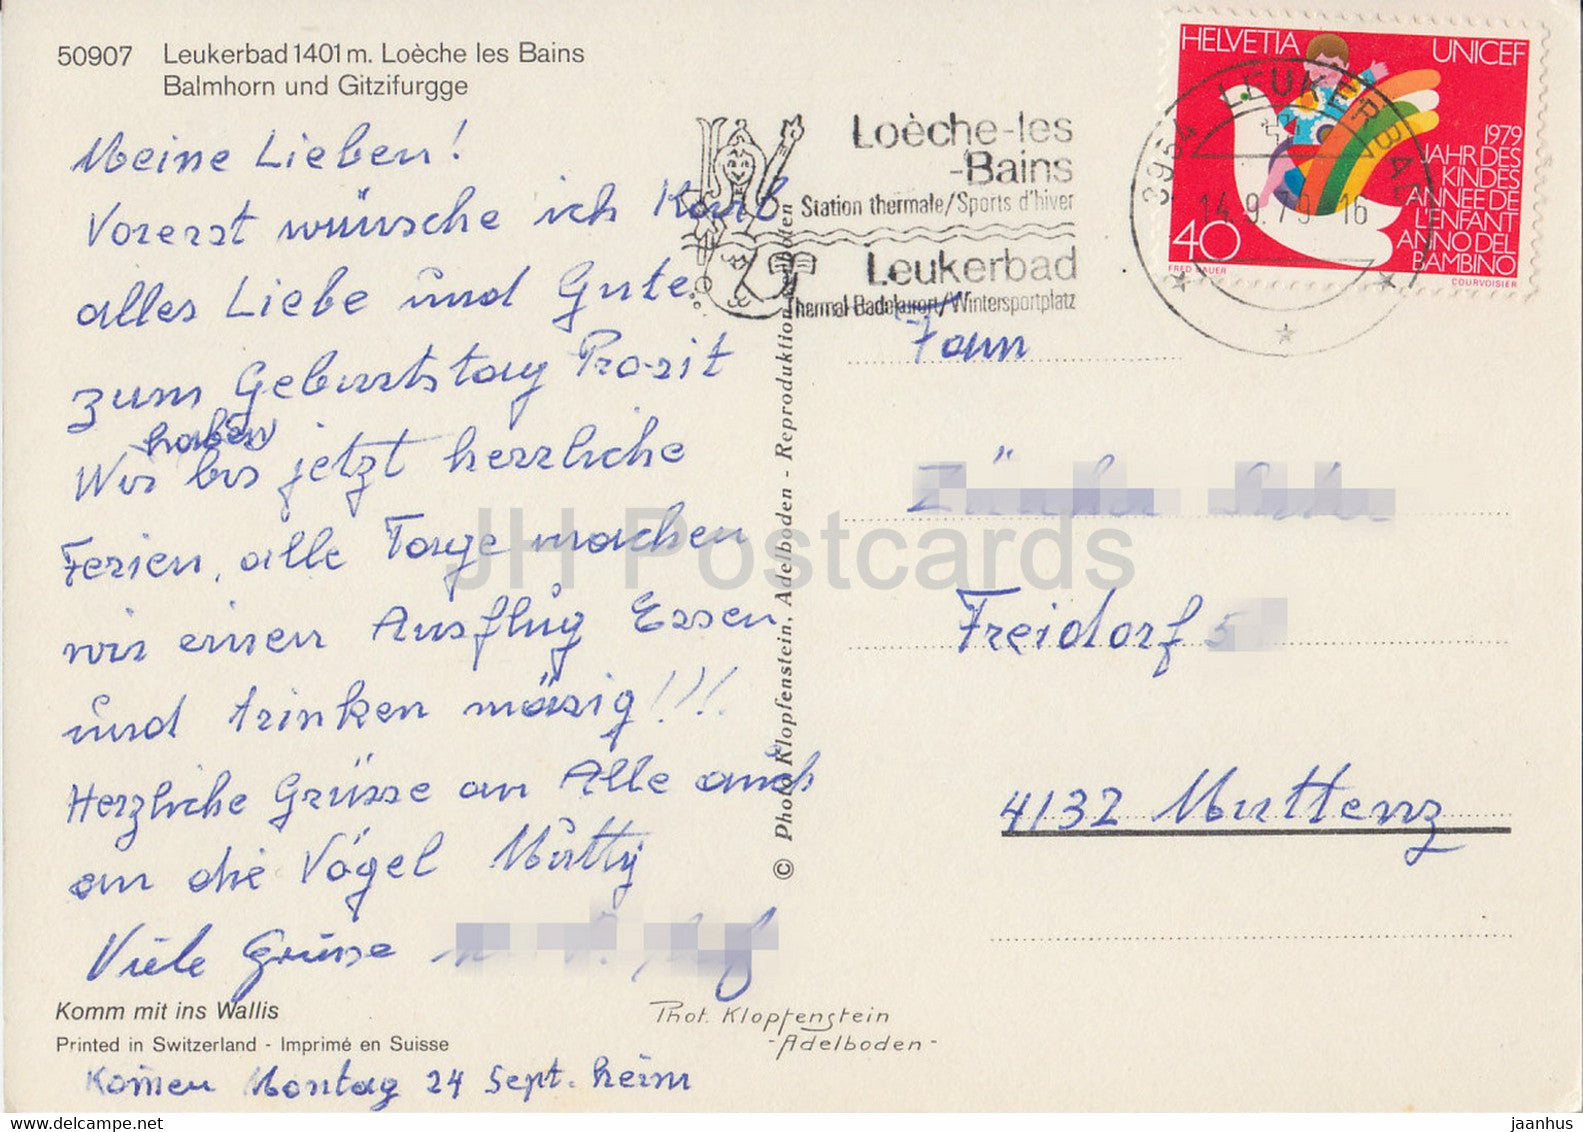 50907 Leukerbad 1401 m. Loèche les Bains
Balmhorn und Gitzifurgge
Meine Lieben!
Vorerst wünsche ich Karl
alles Liebe und Gute
zum Geburtstag Prosit
haben
Wir bis jetzt herrliche
Ferien, alle Tage machen
wir einen Ausflug Essen
und trinken mäsig!!!
Herzliche Grüsse an Alle auch
an die Vögel Mutti
Viele Grüsse
Komm mit ins Wallis
Printed in Switzerland - Imprimé en Suisse
Komen Montag 24 Sept. heim
Phot. Klopfenstein
-Adelboden-
© Photo Klopfenstein, Adelboden - Reproduktion verboten
Loèche-les
-Bains
Station thermale/Sports d'hiver
Leukerbad
Thermal-Badekurort/Wintersportplatz
3954 LEUKERBAD
14.9.79 16
HELVETIA
UNICEF
1979
JAHR DES
KINDES
ANNEE DE
L'ENFANT
ANNO DEL
BAMBINO
40
FRED BAUER
COURVOISIER
Fam
Freidorf 5
4132 Muttenz
JH Postcards
www.delcampe.net
jaanhus